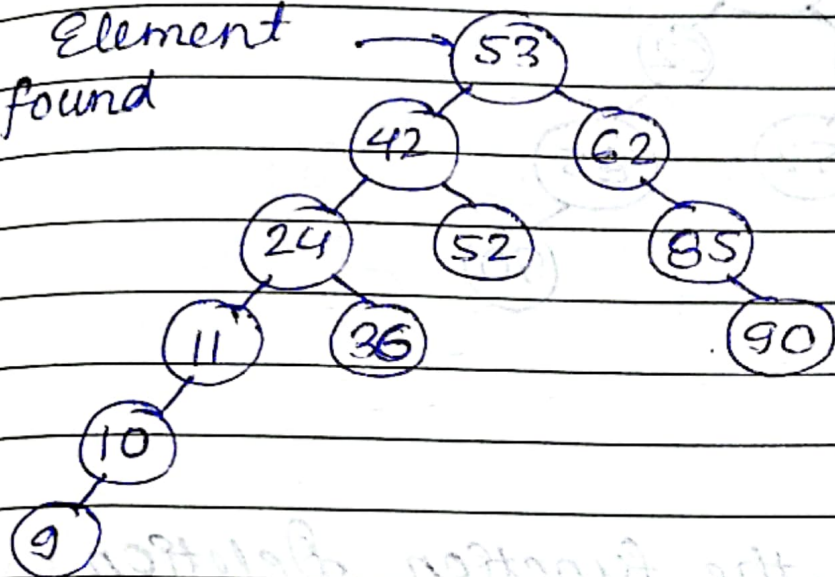 Element
found
53
42 62
24 52 85
11 36 90
10
9